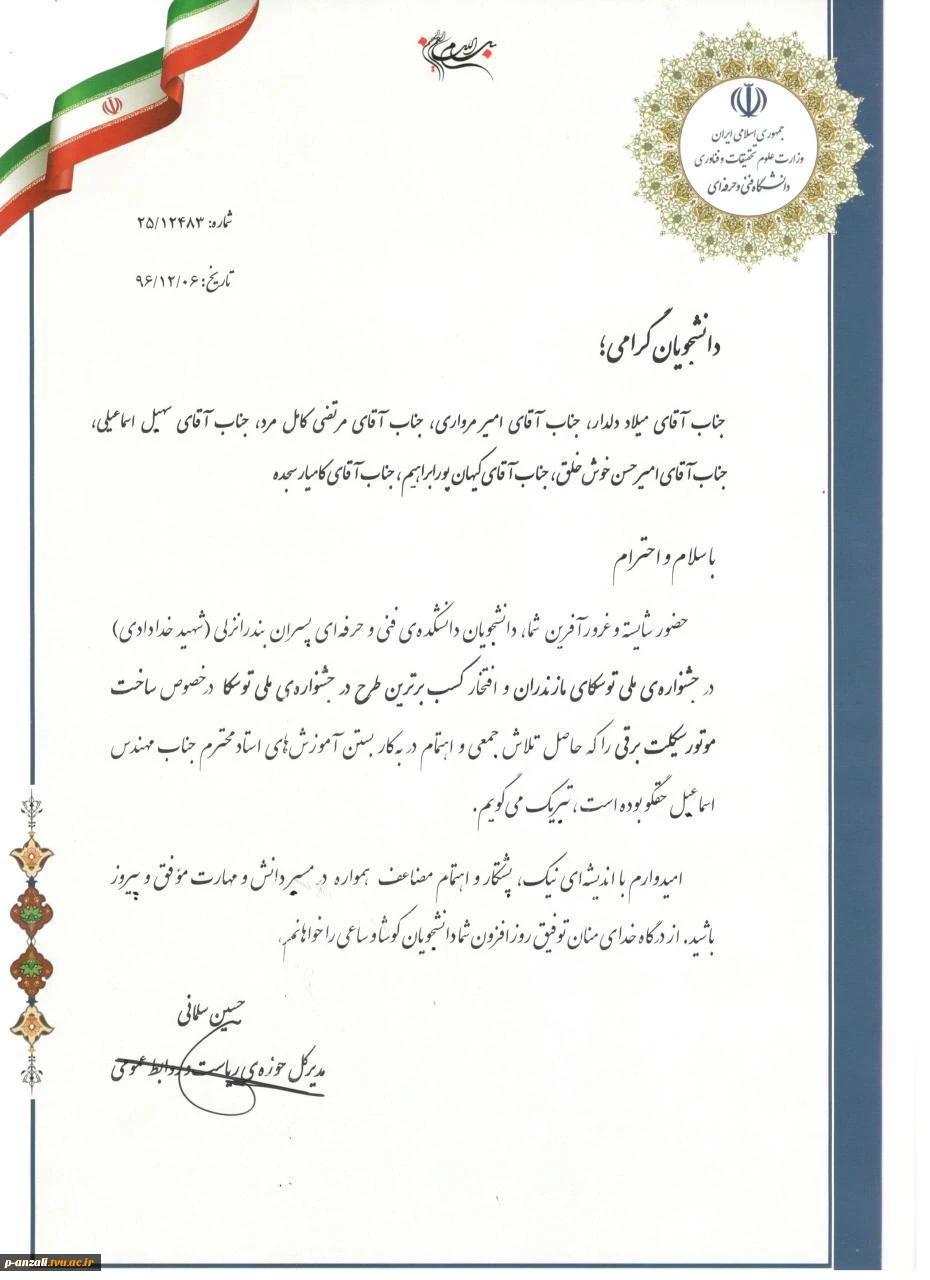 بسم الله الرحمن الرحیم
جمهوری اسلامی ایران
وزارت علوم تحقیقات و فناوری
دانشگاه فنی و حرفه‌ای
شماره: ۲۵/۱۲۴۸۳
تاریخ: ۹۶/۱۲/۰۶
دانشجویان گرامی؛
جناب آقای میلاد دلدار، جناب آقای امیر مرواری، جناب آقای مرتضی کامل مرد، جناب آقای سهیل اسماعیلی،
جناب آقای امیرحسن خوش خلق، جناب آقای کیهان پورابراهیم، جناب آقای کامیار سجده
با سلام و احترام
حضور شایسته و غرورآفرین شما، دانشجویان دانشکده‌ی فنی و حرفه‌ای پسران بندرانزلی (شهید خدادادی)
در جشنواره‌ی ملی توسکای مازندران و افتخار کسب برترین طرح در جشنواره‌ی ملی توسکا درخصوص ساخت
موتورسیکلت برقی را که حاصل تلاش جمعی و اهتمام در به‌کار بستن آموزش‌های استاد محترم جناب مهندس
اسماعیل حقگو بوده است، تبریک می‌گویم.
امیدوارم با اندیشه‌ای نیک، پشتکار و اهتمام مضاعف همواره در مسیر دانش و مهارت موفق و پیروز
باشید. از درگاه خدای منان توفیق روزافزون شما دانشجویان کوشا و ساعی را خواهانم.
حسین سلمانی
مدیرکل حوزه‌ی ریاست و روابط عمومی
p-anzali.tvu.ac.ir